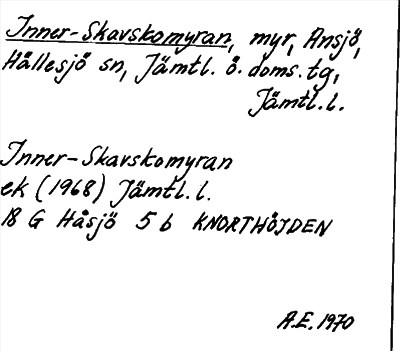 Inner-Skavskomyran, myr, Ansjö,
Hållesjö sn, Jämtl. ö. doms. tg,
Jämtl. l.
Inner-Skavskomyran
ek (1968) Jämtl. l.
18 G Håsjö 5 b KNORTHÖJDEN
A.E. 1970